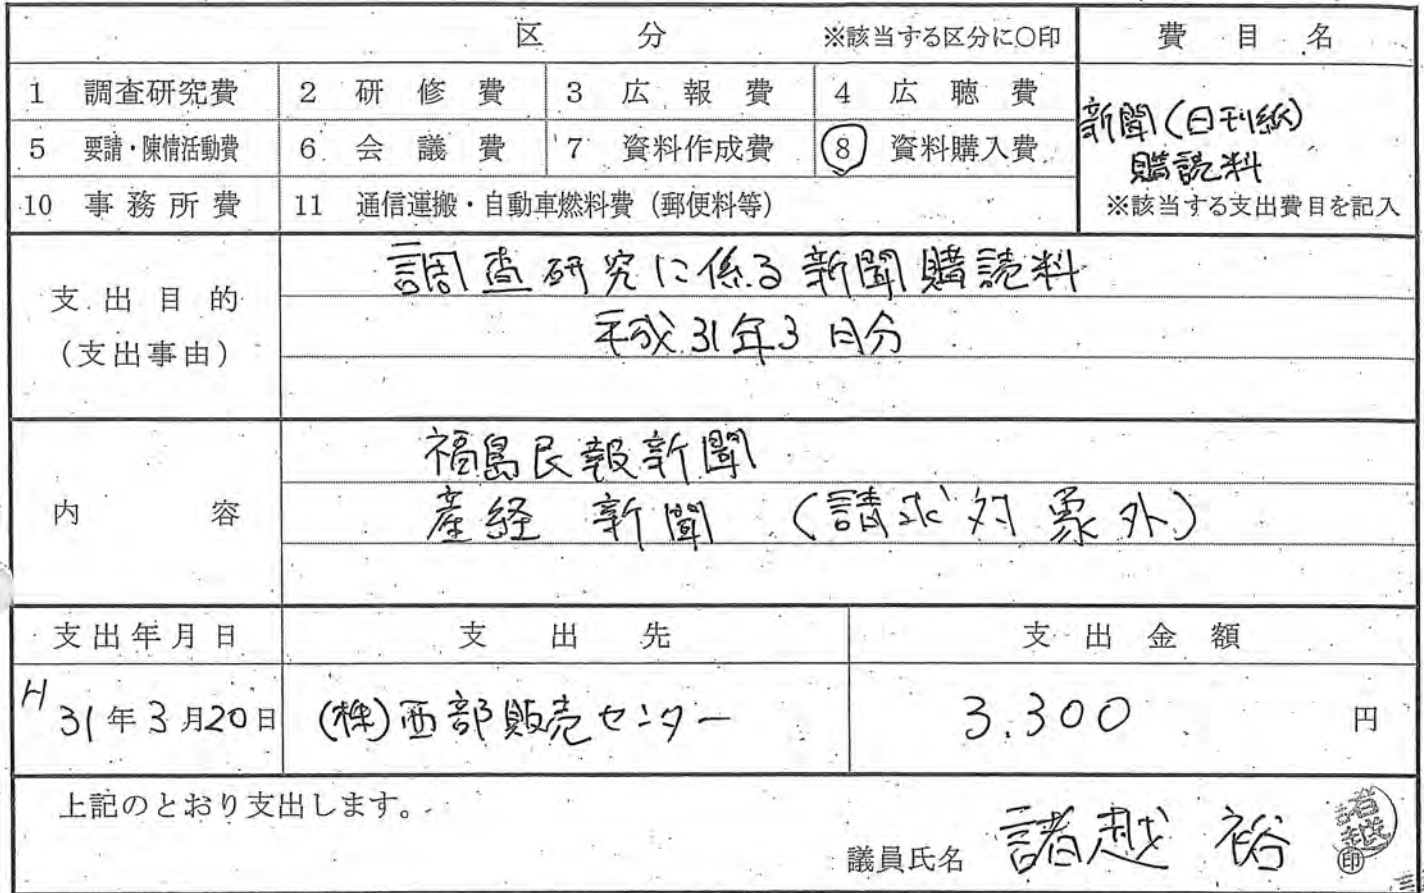 区 分 ※該当する区分に○印 費 目 名
1 調査研究費 2 研 修 費 3 広 報 費 4 広 聴 費
新聞(日刊紙)
5 要請・陳情活動費 6 会 議 費 7 資料作成費 8 資料購入費
購読料
10 事務所費 11 通信運搬・自動車燃料費(郵便料等) ※該当する支出費目を記入
支出目的
(支出事由)
調査研究に係る新聞購読料
平成31年3月分
内 容
福島民報新聞
産経 新聞 (請求対象外)
支出年月日 支 出 先 支 出 金 額
H31年3月20日 (株)西部販売センター 3.300 円
上記のとおり支出します。
議員氏名 諸越 裕 諸越 印